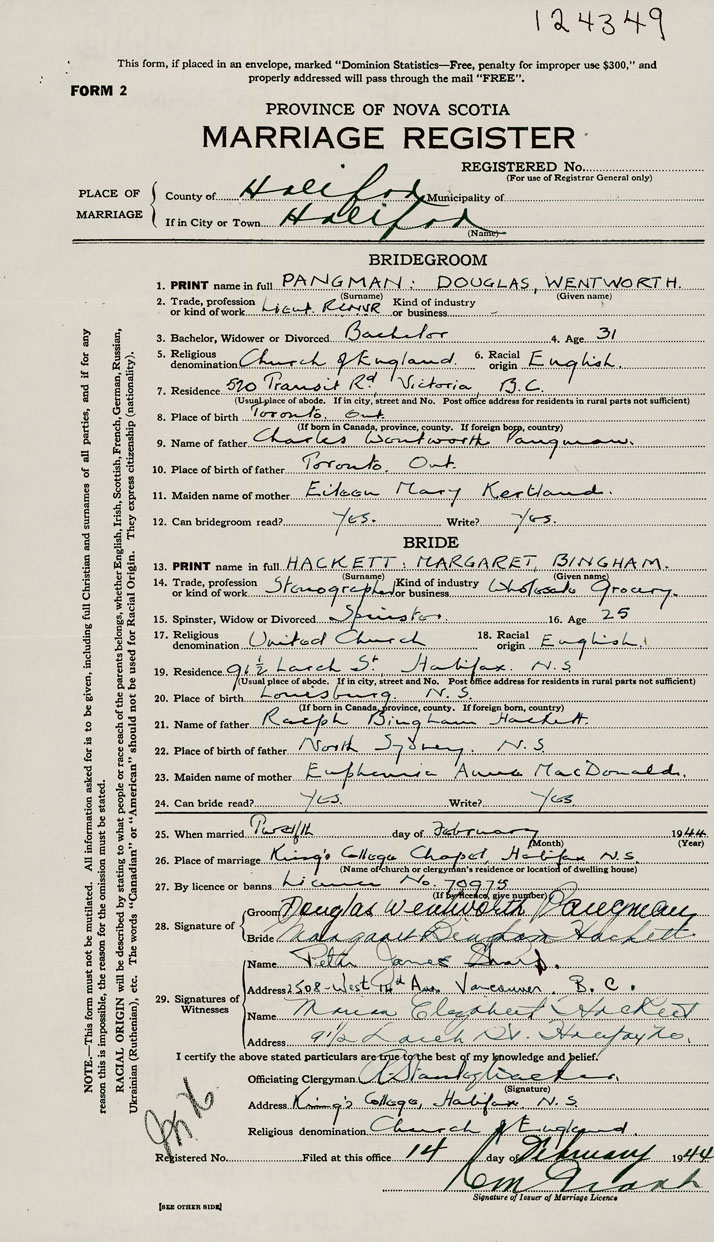 124349
This form, if placed in an envelope, marked "Dominion Statistics—Free, penalty for improper use $300," and
properly addressed will pass through the mail "FREE".
FORM 2
PROVINCE OF NOVA SCOTIA
MARRIAGE REGISTER
REGISTERED No.
(For use of Registrar General only)
PLACE OF MARRIAGE
County of Halifax Municipality of
If in City or Town Halifax
(Name)
BRIDEGROOM
1. PRINT name in full PANGMAN: DOUGLAS, WENTWORTH.
(Surname) (Given name)
2. Trade, profession or kind of work Lieut. RCNVR Kind of industry or business
3. Bachelor, Widower or Divorced Bachelor 4. Age 31
5. Religious denomination Church of England. 6. Racial origin English.
7. Residence 570 Transit Rd, Victoria, B.C.
(Usual place of abode. If in city, street and No. Post office address for residents in rural parts not sufficient)
8. Place of birth Toronto. Ont.
(If born in Canada, province, county. If foreign born, country)
9. Name of father Charles Wentworth Pangman.
10. Place of birth of father Toronto. Ont.
11. Maiden name of mother Eileen Mary Kertland.
12. Can bridegroom read? Yes. Write? Yes.
BRIDE
13. PRINT name in full HACKETT: MARGARET, BINGHAM.
(Surname) (Given name)
14. Trade, profession or kind of work Stenographer Kind of industry or business Wholesale Grocery.
15. Spinster, Widow or Divorced Spinster. 16. Age 25
17. Religious denomination United Church 18. Racial origin English.
19. Residence 91½ Larch St, Halifax. N.S.
(Usual place of abode. If in city, street and No. Post office address for residents in rural parts not sufficient)
20. Place of birth Louisburg. N.S.
(If born in Canada, province, county. If foreign born, country)
21. Name of father Ralph Bingham Hackett.
22. Place of birth of father North Sydney. N.S.
23. Maiden name of mother Euphemia Anna MacDonald.
24. Can bride read? Yes. Write? Yes
25. When married Twelfth day of February 1944
(Month) (Year)
26. Place of marriage King's College Chapel, Halifax N.S.
(Name of church or clergyman's residence or location of dwelling house)
27. By licence or banns Licence No. 70975
(If by licence, give number)
28. Signature of
Groom Douglas Wentworth Pangman
Bride Margaret Bingham Hackett
29. Signatures of Witnesses
Name Peter James
Address 2508-West Ave. Vancouver, B.C.
Name Elizabeth Hackett
Address 91½ Larch St. Halifax
I certify the above stated particulars are true to the best of my knowledge and belief.
Officiating Clergyman A Stanley Walker.
(Signature)
Address King's College, Halifax N.S.
Religious denomination Church of England.
Registered No. Filed at this office 14 day of February 1944
Signature of Issuer of Marriage Licence
[SEE OTHER SIDE]
NOTE.—This form must not be mutilated. All information asked for is to be given, including full Christian and surnames of all parties, and if for any
reason this is impossible, the reason for the omission must be stated.
RACIAL ORIGIN will be described by stating to what people or race each of the parents belongs, whether English, Irish, Scottish, French, German, Russian,
Ukrainian (Ruthenian), etc. The words "Canadian" or "American" should not be used for Racial Origin. They express citizenship (nationality).